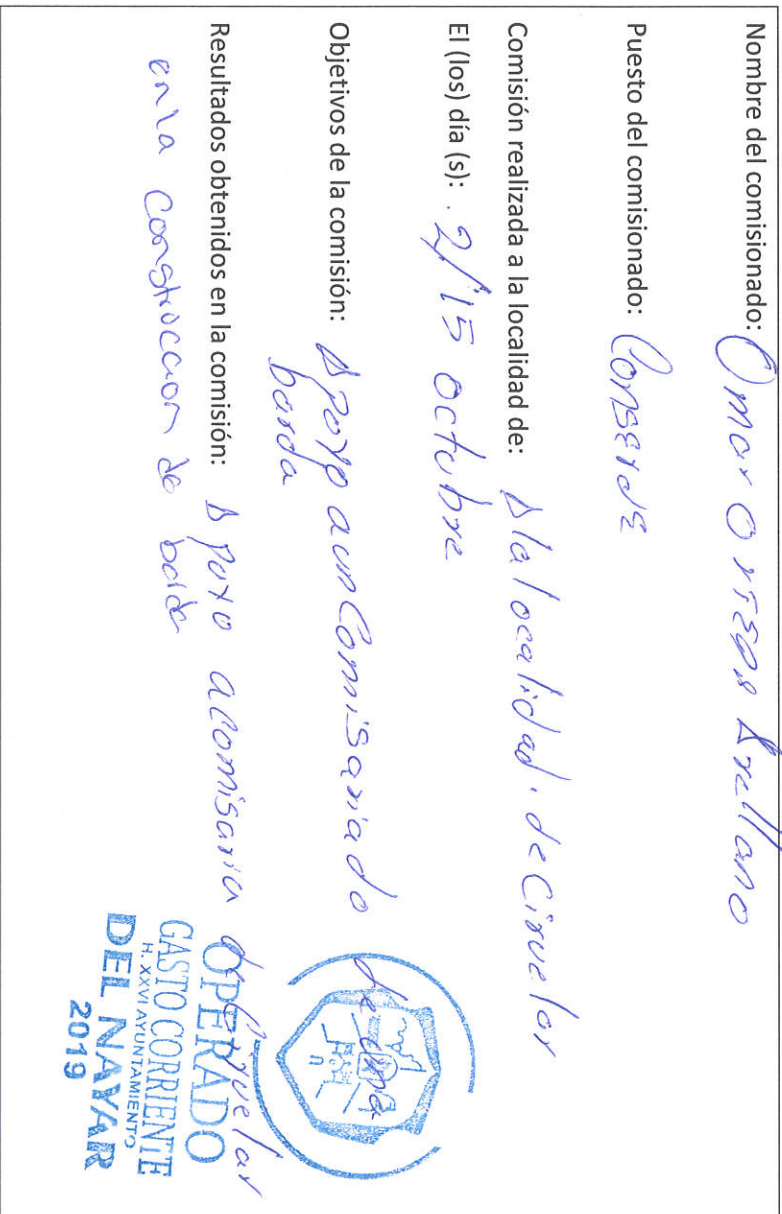 Nombre del comisionado: Omar Ortega Arellano
Puesto del comisionado: Conserje
Comisión realizada a la localidad de: A la localidad. de Ciruelar
El (los) día (s): . 2/15 octubre
Objetivos de la comisión: Apoyo a un Comisariado de una
barda
Resultados obtenidos en la comisión: Apoyo a comisaria de Ciruelar
en la construccion de barda
OPERADO
GASTO CORRIENTE
H. XXVI AYUNTAMIENTO
DEL NAYAR
2019